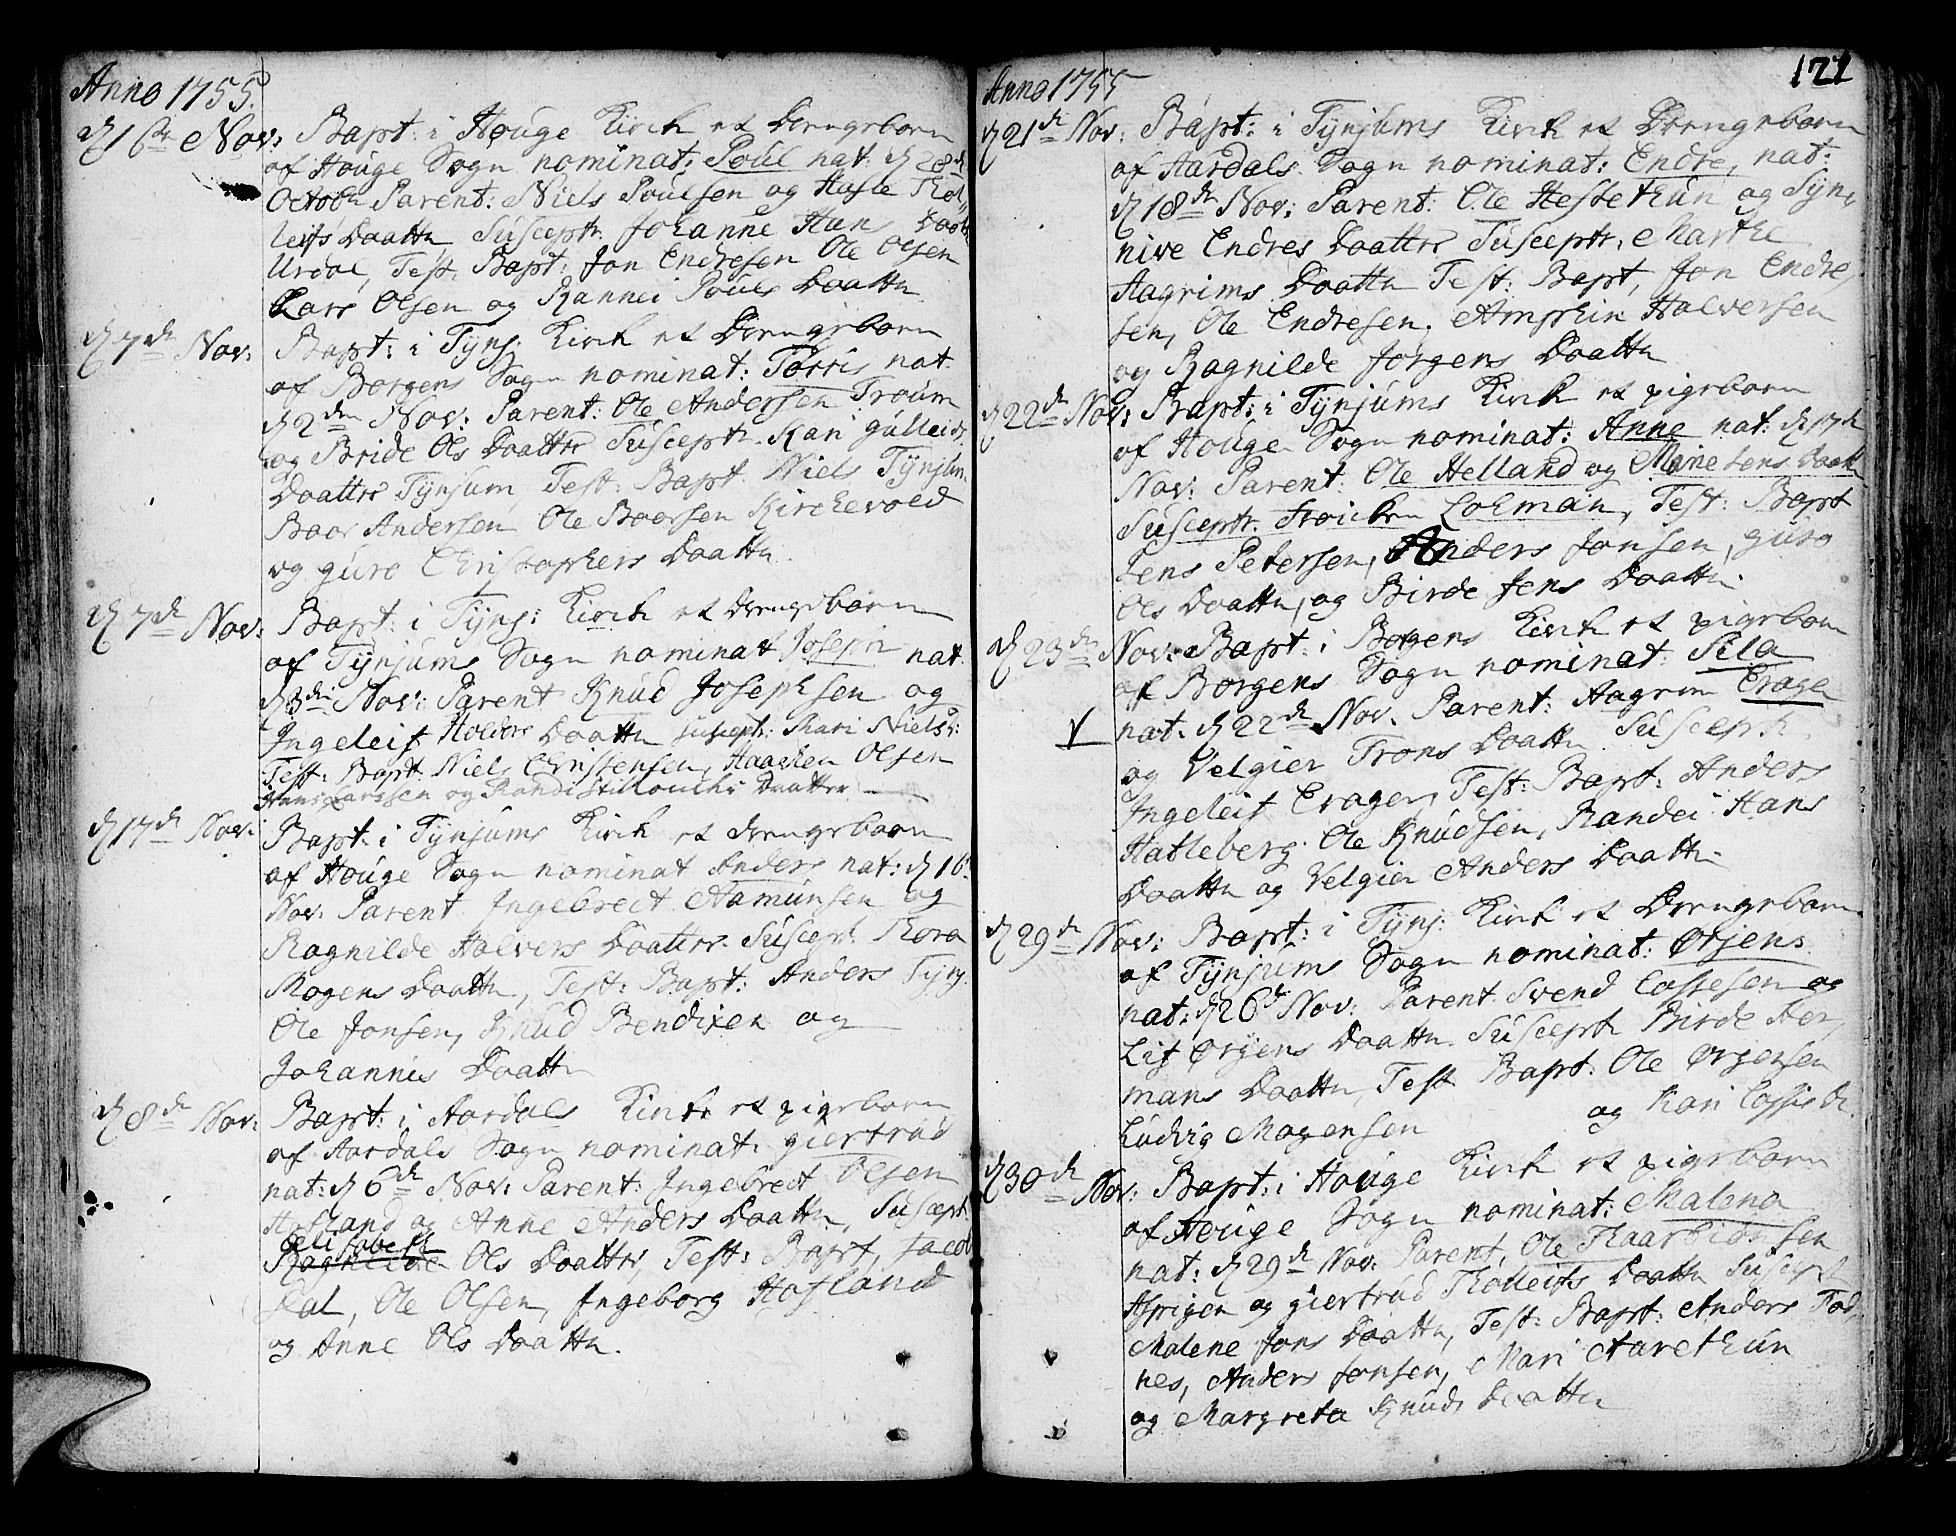 Anno 1755.
d 1ste Nov: Bapt: i Houge Kirch et Drengebarn
af Houge Sogn nominat: Poul nat. d 28d
Octobr Parent: Niels Poulsen og Hasle Thol,,
leifs Daatter Susceptr. Johanne Hans Daatr
Urdal, Test. Bapt: Jon Endresen Ole Olsen
Lars Olsen og Rannei Pouls Daatter
d 7de Nov: Bapt: i Tynj: Kirch et Drengebarn
af Borgens Sogn nominat: Torris nat
d 2den Nov: Parent: Ole Andersen Troum
og Bride Ols Daatter Suscept. Kari Gulleiks
Daatter Tynjum, Test: Bapt. Niels Tynjum
Baar Andersen Ole Baarsen Kirchevold
og Guro Christophers Daatter.
d 7de Nov: Bapt: i Tynj: Kirch et Drengebarn
af Tynjums Sogn nominat Joseph nat
d 3die Nov: Parent Knud Josephsen og
Ingeleif Holders Daatter suscept: Mari Nielsd:
Test: Bapt Niels Christensen, Haachen Olsen
Hans Larssen og Randi Daatter
d 17de Nov: Bapt: i Tynjums Kirch et drengebarn
af Houge Sogn nominat Anders nat: d 16
Nov: Parent Ingebrect Aamunsen og
Ragnilde Halvers Daatter. Suscept Thora
Mogens Daatter, Test: Bapt: Anders Tynj.
Ole Jonsen, Knud Bendixen og
Johannis Daatter
d 8de Nov: Bapt: i Aardals Kirch et pigebarn
af Aardals Sogn nominat: giertrud
nat: d 6de Nov: Parent: Ingebrect Olsen
Hofland og Anne Anders Daatter, Suscept
Elisabeth
Ragnilde Ols Daatter, Test: Bapt, Jacob
Dal, Ole Olsen, Ingeborg Hofland
og Anne Ols Daatter.
Anno 1755
121
d 21de Nov: Bapt: i Tynjums Kirch et Drengebarn
af Aardals Sogn nominat: Endre, nat:
d 18de Nov: Parent: Ole Hestethun og Syn,,
nive Endres Daatter Susceptr. Marthe
Aagrims Daatter Test: Bapt, Jon Endre,,
sen, Ole Endresen. Amphin Halversen
og Ragnilde Jørgens Daatter
d 22de Nov: Bapt: i Tynjums Kirch et pigebarn
af Houge Sogn nominat: Anne nat: d 17de
Nov: Parent Ole Helland og Marie Jens Daatter
Susceptr. Froichen Lohman, Test: Bapt
Jens Petersen, Anders Jonsen, guro
Ols Daatter, og Birde Jens Daatter.
d 23de Nov: Bapt: i Borgens Kirch et pigebarn
af Borgens Sogn nominat: Sila
nat. d 22de Nov. Parent: Aagrim Eragen
V
og Velgier Trons Daatter Susceptr
Ingeleif Eragen, Test: Bapt: Anders
Hatleberg. Ole Knudsen, Randei Hans
Daatter og Velgier Anders Daatter
d 29de Nov: Bapt: i Tynj: Kirch et Drengebarn
af Tynjums Sogn nominat: Ørjens
nat: d 26de Nov: Parent Svend Cossesen og
Lif Ørjens Daatter. Suscept Birde Her,,
mans Daatter, Test Bapt. Ole Ørgensen
Ludvig Mogensen og Kari Cossis Dr.
d 30de Nov: Bapt: i Houge Kirch et pigebarn
af Houge Sogn nominat: Malena
nat: d 29de Nov: Parent, Ole Thaarbiønsen
Asprigen og giertrud Tholleifs Daatter Suscept
Malene Jons Daatter, Test: Bapt: Anders Fod,,
nes, Anders Jonsen, Mari Aarethun
og Margreta Knuds Daatter